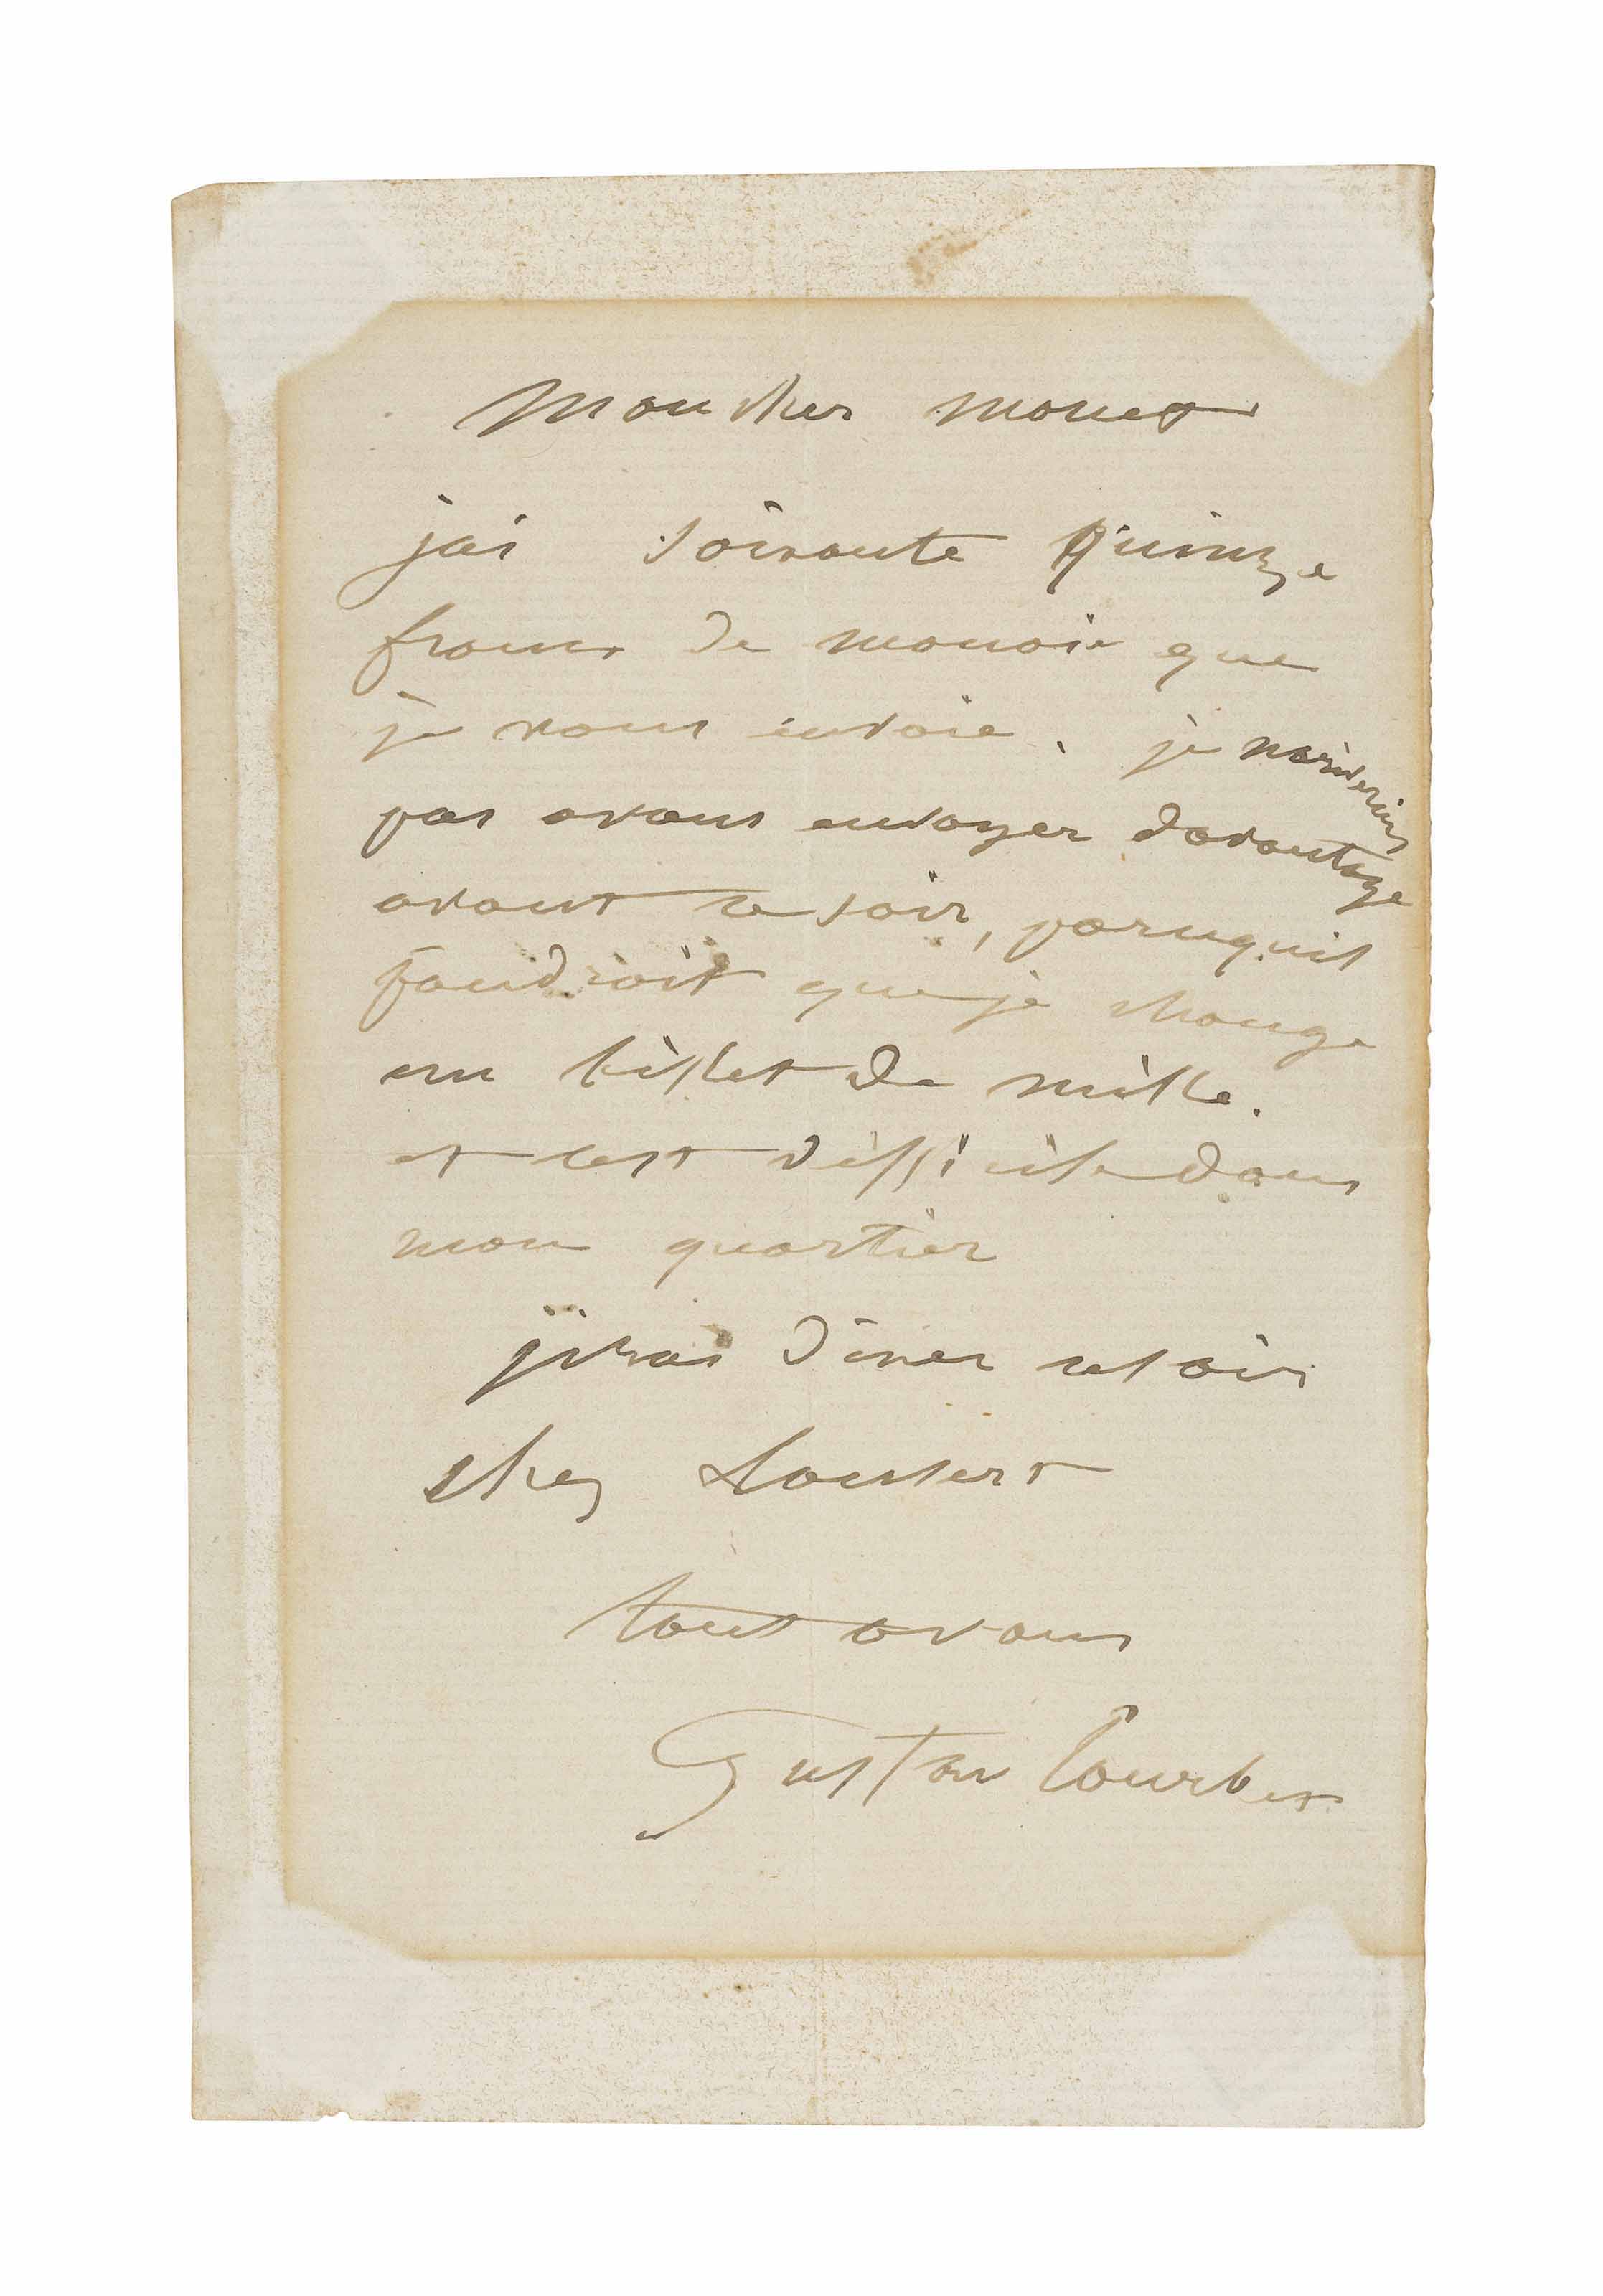 Mon cher monet
jai soixante quinze
francs de monoie que
je vous envoie. je n'ariverais
pas avous envoyer davantage
avant ce soir, parcequil
faudroit que je change
un billet de mille.
et cest difficile dans
mon quartier
j'irai diner ce soir
chez
tout avous
Gustave Courbet